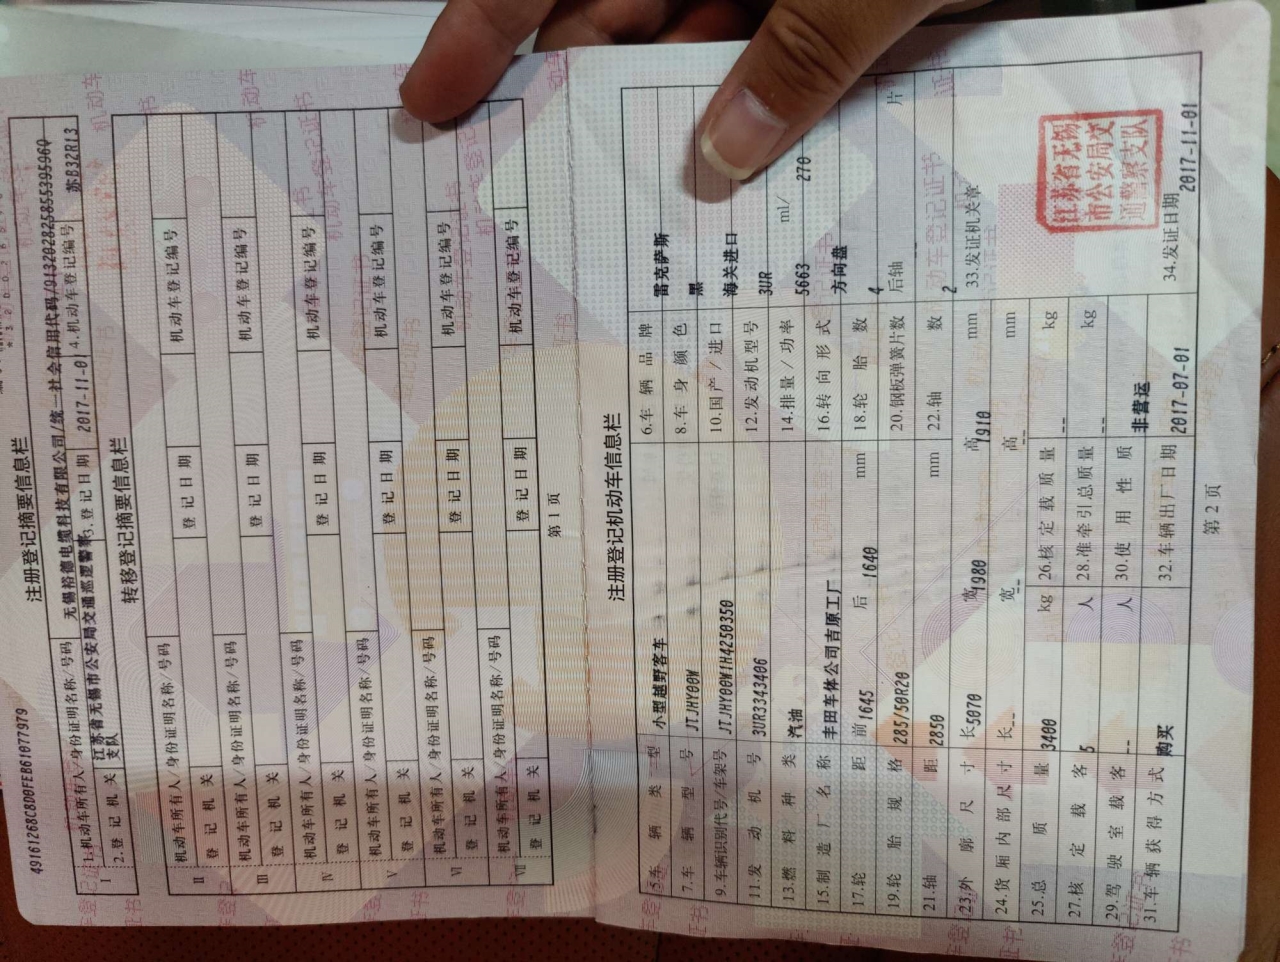 49161268C8D0FEB61077979
注册登记摘要信息栏
Ⅰ 1.机动车所有人/身份证明名称/号码 无锡裕德电缆科技有限公司/统一社会信用代码/91320282585539596Q
2.登记机关 江苏省无锡市公安局交通巡逻警察支队 3.登记日期 2017-11-01 4.机动车登记编号 苏B32R13
转移登记摘要信息栏
Ⅱ 机动车所有人/身份证明名称/号码
登记机关 登记日期 机动车登记编号
Ⅲ 机动车所有人/身份证明名称/号码
登记机关 登记日期 机动车登记编号
Ⅳ 机动车所有人/身份证明名称/号码
登记机关 登记日期 机动车登记编号
Ⅴ 机动车所有人/身份证明名称/号码
登记机关 登记日期 机动车登记编号
Ⅵ 机动车所有人/身份证明名称/号码
登记机关 登记日期 机动车登记编号
Ⅶ 机动车所有人/身份证明名称/号码
登记机关 登记日期 机动车登记编号
第1页
注册登记机动车信息栏
5.车辆类型 小型越野客车 6.车辆品牌 雷克萨斯
7.车辆型号 JTJHY00W 8.车身颜色 黑
9.车辆识别代号/车架号 JTJHY00W1H4250350 10.国产/进口 海关进口
11.发动机号 3UR3343406 12.发动机型号 3UR
13.燃料种类 汽油 14.排量/功率 5663 ml/ 270
15.制造厂名称 丰田车体公司吉原工厂 16.转向形式 方向盘
17.轮距 前 1645 后 1640 mm 18.轮胎数 4
19.轮胎规格 285/50R20 20.钢板弹簧片数 后轴 片
21.轴距 2850 mm 22.轴数 2
23.外廓尺寸 长 5070 宽 1980 高 1910 mm 33.发证机关章
24.货厢内部尺寸 长 -- 宽 -- 高 -- mm
25.总质量 3400 kg 26.核定载质量 -- kg
27.核定载客 5 人 28.准牵引总质量 -- kg
29.驾驶室载客 -- 人 30.使用性质 非营运
31.车辆获得方式 购买 32.车辆出厂日期 2017-07-01 34.发证日期 2017-11-01
江苏省无锡
市公安局交
通警察支队
第2页